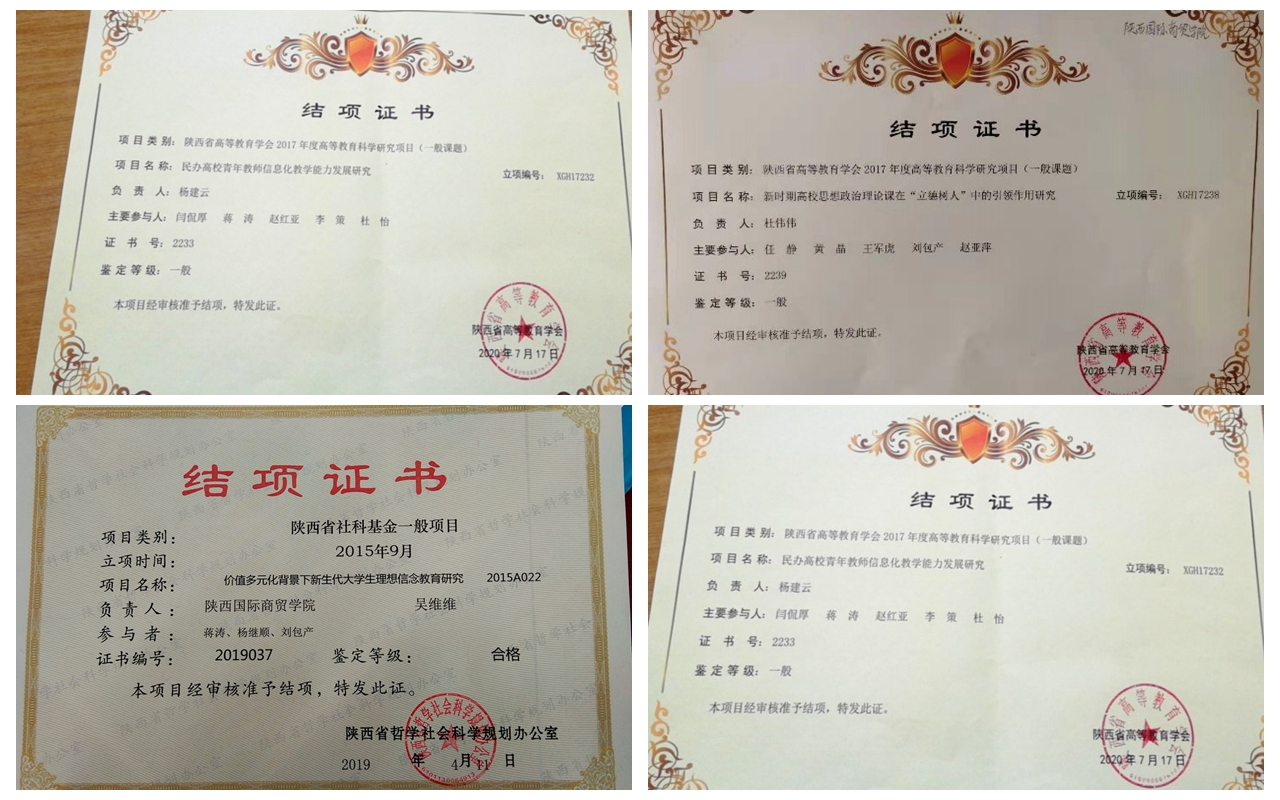 结项证书
项目类别：陕西省高等教育学会2017年度高等教育科学研究项目（一般课题）
项目名称：民办高校青年教师信息化教学能力发展研究 立项编号：XGH17232
负责人：杨建云
主要参与人：闫侃厚 蒋涛 赵红亚 李策 杜怡
证书号：2233
鉴定等级：一般
本项目经审核准予结项，特发此证。
陕西省高等教育学会
2020年7月17日
陕西国际商贸学院
结项证书
项目类别：陕西省高等教育学会2017年度高等教育科学研究项目（一般课题）
项目名称：新时期高校思想政治理论课在“立德树人”中的引领作用研究 立项编号：XGH17238
负责人：杜伟伟
主要参与人：任静 黄晶 王军虎 刘包产 赵亚萍
证书号：2239
鉴定等级：一般
本项目经审核准予结项，特发此证。
陕西省高等教育学会
2020年7月17日
结项证书
项目类别：陕西省社科基金一般项目
立项时间：2015年9月
项目名称：价值多元化背景下新生代大学生理想信念教育研究 2015A022
负责人：陕西国际商贸学院 吴维维
参与者：蒋涛、杨继顺、刘包产
证书编号：2019037 鉴定等级：合格
本项目经审核准予结项，特发此证。
陕西省哲学社会科学规划办公室
2019年4月11日
结项证书
项目类别：陕西省高等教育学会2017年度高等教育科学研究项目（一般课题）
项目名称：民办高校青年教师信息化教学能力发展研究 立项编号：XGH17232
负责人：杨建云
主要参与人：闫侃厚 蒋涛 赵红亚 李策 杜怡
证书号：2233
鉴定等级：一般
本项目经审核准予结项，特发此证。
陕西省高等教育学会
2020年7月17日